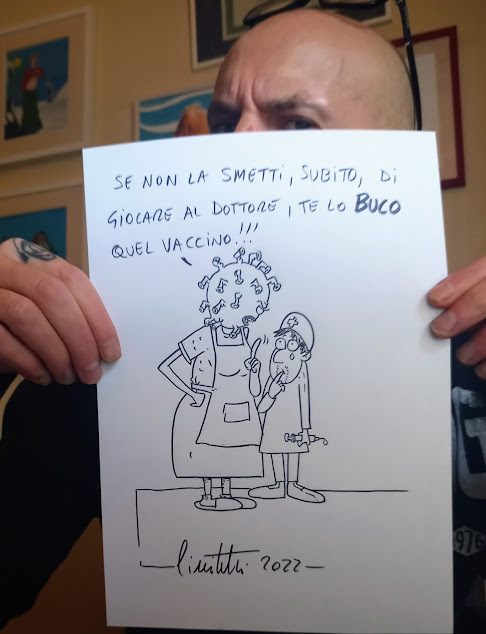 SE NON LA SMETTI, SUBITO, DI
GIOCARE AL DOTTORE, TE LO BUCO
QUEL VACCINO!!!
2022
976